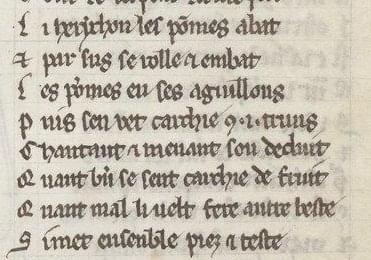 L i herychon les põmes abat
⁊ par sus se rolle ⁊ embat
L es põmes en ses aguillons
P uis sen vet carchie 9·i· truus
C hantant ⁊ menant son deduit
Q uant bñ se sent carchie de fruit
Q uant mal li uelt fere autre beste
S i met ensenble piez ⁊ teste